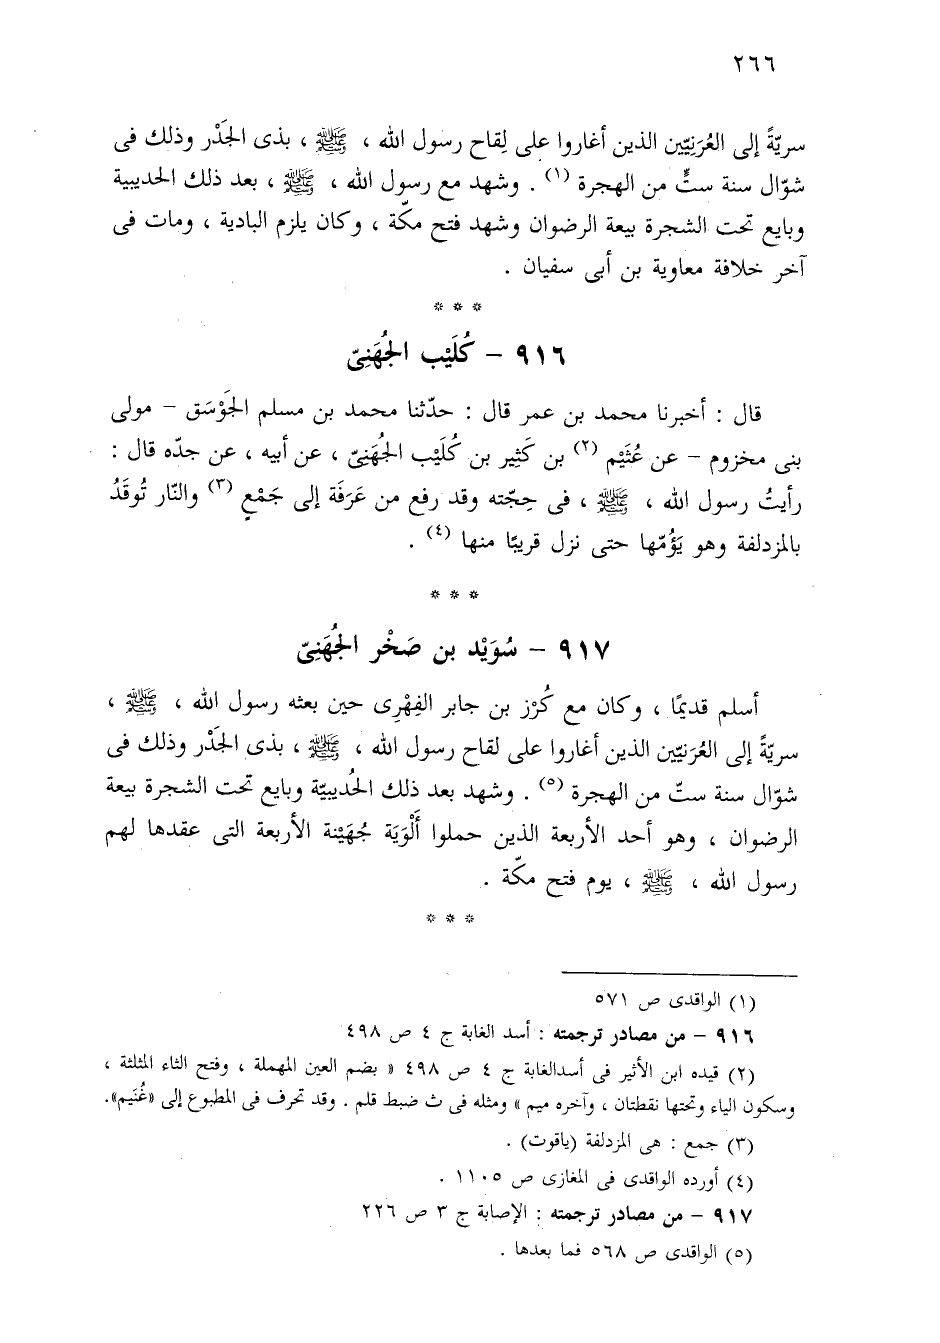 ٢٦٦
سريّةً إلى العُرَنِيّين الذين أغاروا على لِقاح رسول الله ، ﷺ ، بذى الجَدْر وذلك فى
شوّال سنة ستٍّ من الهجرة (١) . وشهد مع رسول الله ، ﷺ ، بعد ذلك الحديبية
وبايع تحت الشجرة بيعة الرضوان وشهد فتح مكّة ، وكان يلزم البادية ، ومات فى
آخر خلافة معاوية بن أبى سفيان .
* * *
٩١٦ – كُلَيْب الجُهَنِىّ
قال : أخبرنا محمد بن عمر قال : حدّثنا محمد بن مسلم الجَوْسَق – مولى
بنى مخزوم – عن عُثَيْم (٢) بن كَثِير بن كُلَيْب الجُهَنِىّ ، عن أبيه ، عن جدّه قال :
رأيتُ رسول الله ، ﷺ ، فى حِجّته وقد رفع من عَرَفَة إلى جَمْعٍ (٣) والنّار تُوقَدُ
بالمزدلفة وهو يَؤُمّها حتى نزل قريبًا منها (٤) .
* * *
٩١٧ – سُوَيْد بن صَخْر الجُهَنِىّ
أسلم قديمًا ، وكان مع كُرْز بن جابر الفِهْرِى حين بعثه رسول الله ، ﷺ ،
سريّةً إلى العُرَنيّين الذين أغاروا على لقاح رسول الله ، ﷺ ، بذى الجَدْر وذلك فى
شوّال سنة ستّ من الهجرة (٥) . وشهد بعد ذلك الحُديبيّة وبايع تحت الشجرة بيعة
الرضوان ، وهو أحد الأربعة الذين حملوا أَلْوَيَة جُهَيْنة الأربعة التى عقدها لهم
رسول الله ، ﷺ ، يوم فتح مكّة .
* * *
(١) الواقدى ص ٥٧١
٩١٦ – من مصادر ترجمته : أسد الغابة ج ٤ ص ٤٩٨
(٢) قيده ابن الأثير فى أسدالغابة ج ٤ ص ٤٩٨ « بضم العين المهملة ، وفتح الثاء المثلثة ،
وسكون الياء وتحتها نقطتان ، وآخره ميم » ومثله فى ث ضبط قلم . وقد تحرف فى المطبوع إلى «غُنَيم».
(٣) جمع : هى المزدلفة (ياقوت) .
(٤) أورده الواقدى فى المغازى ص ١١٠٥ .
٩١٧ – من مصادر ترجمته : الإصابة ج ٣ ص ٢٢٦
(٥) الواقدى ص ٥٦٨ فما بعدها .